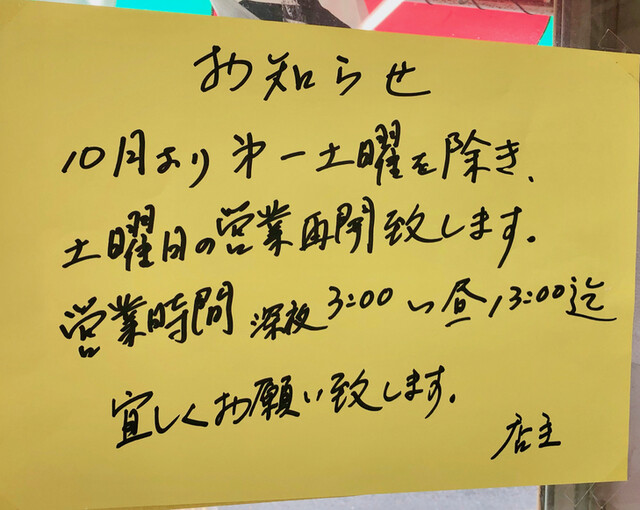 お知らせ
10月より第一土曜を除き、
土曜日の営業再開致します。
営業時間 深夜3:00〜昼13:00迄
宜しくお願い致します。
店主